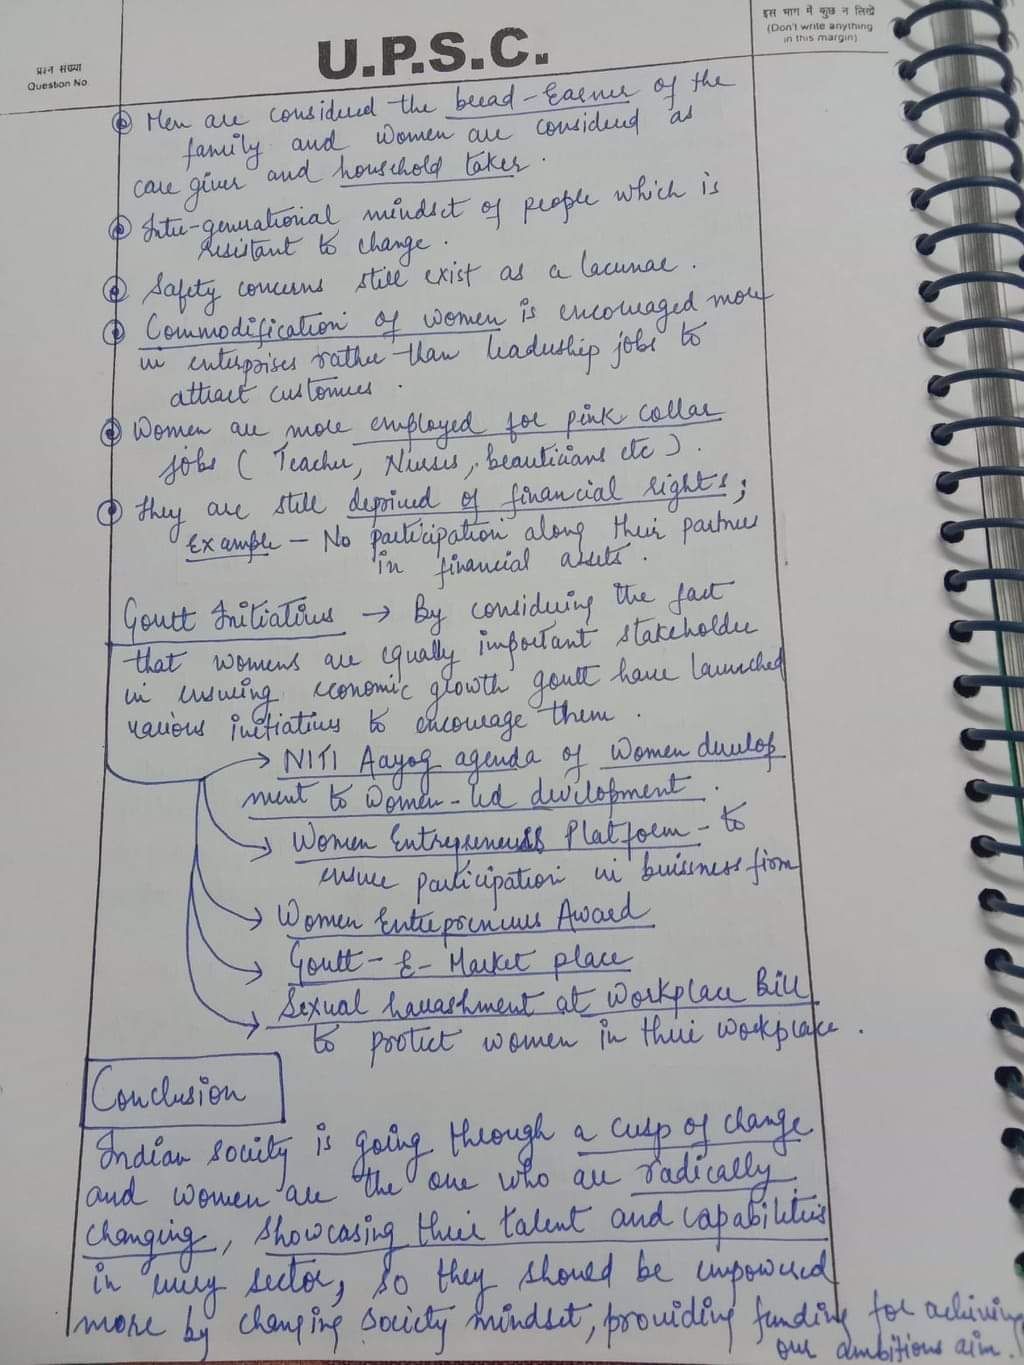 प्रश्न संख्या
Question No
U.P.S.C.
इस भाग में कुछ न लिखें
(Don't write anything
in this margin)
Men are considered the bread-Earner of the
family and women are considered as
care giver and household taker.
Inter-generational mindset of people which is
resistant to change.
Safety concerns still exist as a lacunae.
Commodification of women is encouraged more
in enterprises rather than leadership jobs to
attract customers.
Women are more employed for pink-collar
jobs (Teacher, Nurses, beauticians etc).
They are still deprived of financial rights;
Example - No participation along their partner
in financial assets.
Govtt Initiatives → By considering the fact
that womens are equally important stakeholder
in ensuring economic growth govtt have launched
various initiatives to encourage them.
→ NITI Aayog agenda of women develop
ment to women-led development.
Women Entrepreneurs Platform - to
ensure participation in buisiness firm
Women Entrepreneurs Award
Govtt-E-Market place
Sexual harrashment at workplace Bill
to protect women in their workplace.
Conclusion
Indian society is going through a cusp of change
and women are the one who are radically
changing, showcasing their talent and capabilities
in every sector, so they should be empowered
more by changing society mindset, providing funding for achieving
our ambitious aim.